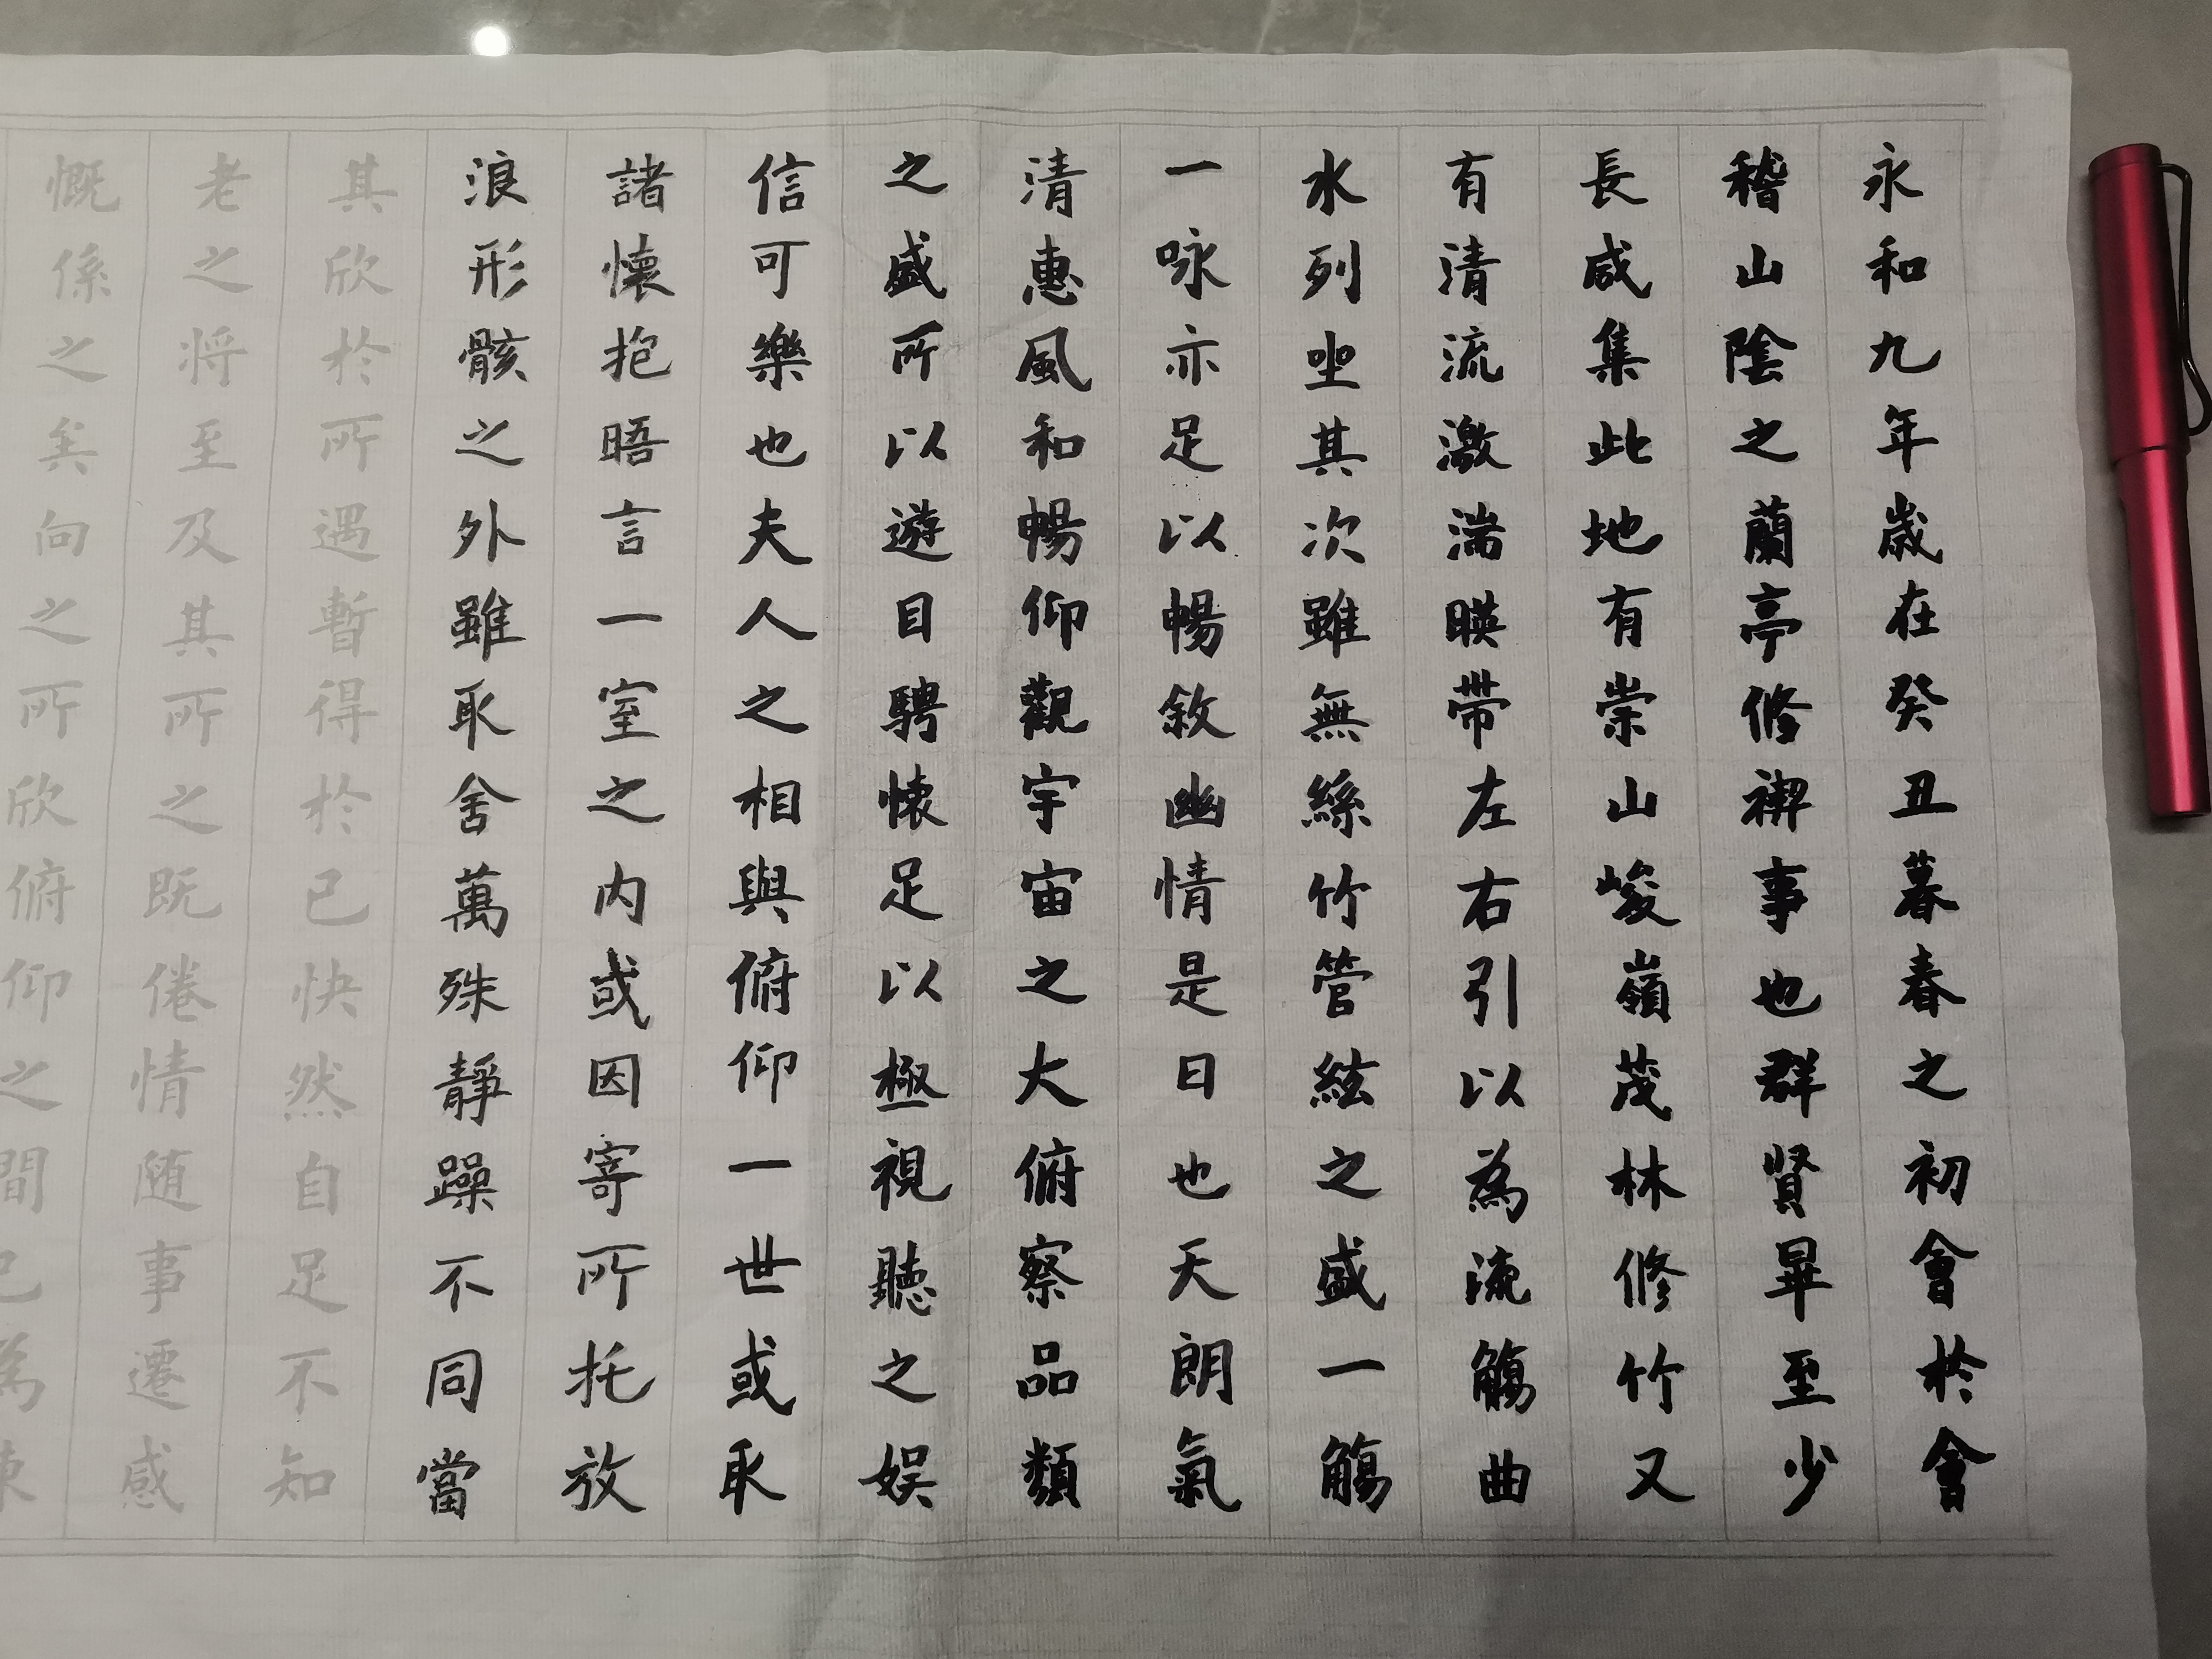 永和九年歲在癸丑暮春之初會於會
稽山陰之蘭亭脩禊事也群賢畢至少
長咸集此地有崇山峻嶺茂林修竹又
有清流激湍暎帶左右引以為流觴曲
水列坐其次雖無絲竹管絃之盛一觴
一咏亦足以暢敘幽情是日也天朗氣
清惠風和暢仰觀宇宙之大俯察品類
之盛所以遊目騁懐足以極視聽之娛
信可樂也夫人之相與俯仰一世或取
諸懷抱晤言一室之内或因寄所托放
浪形骸之外雖取舍萬殊靜躁不同當
其欣於所遇暫得於己快然自足不知
老之将至及其所之既倦情随事遷感
慨係之矣向之所欣俯仰之間已為陳